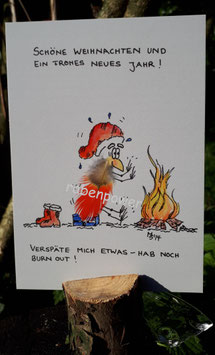 SCHÖNE WEIHNACHTEN UND
EIN TROHES NEUES JAHR!
rabenpower
VERSPÄTE MICH ETWAS - HAB NOCH
BURN OUT!